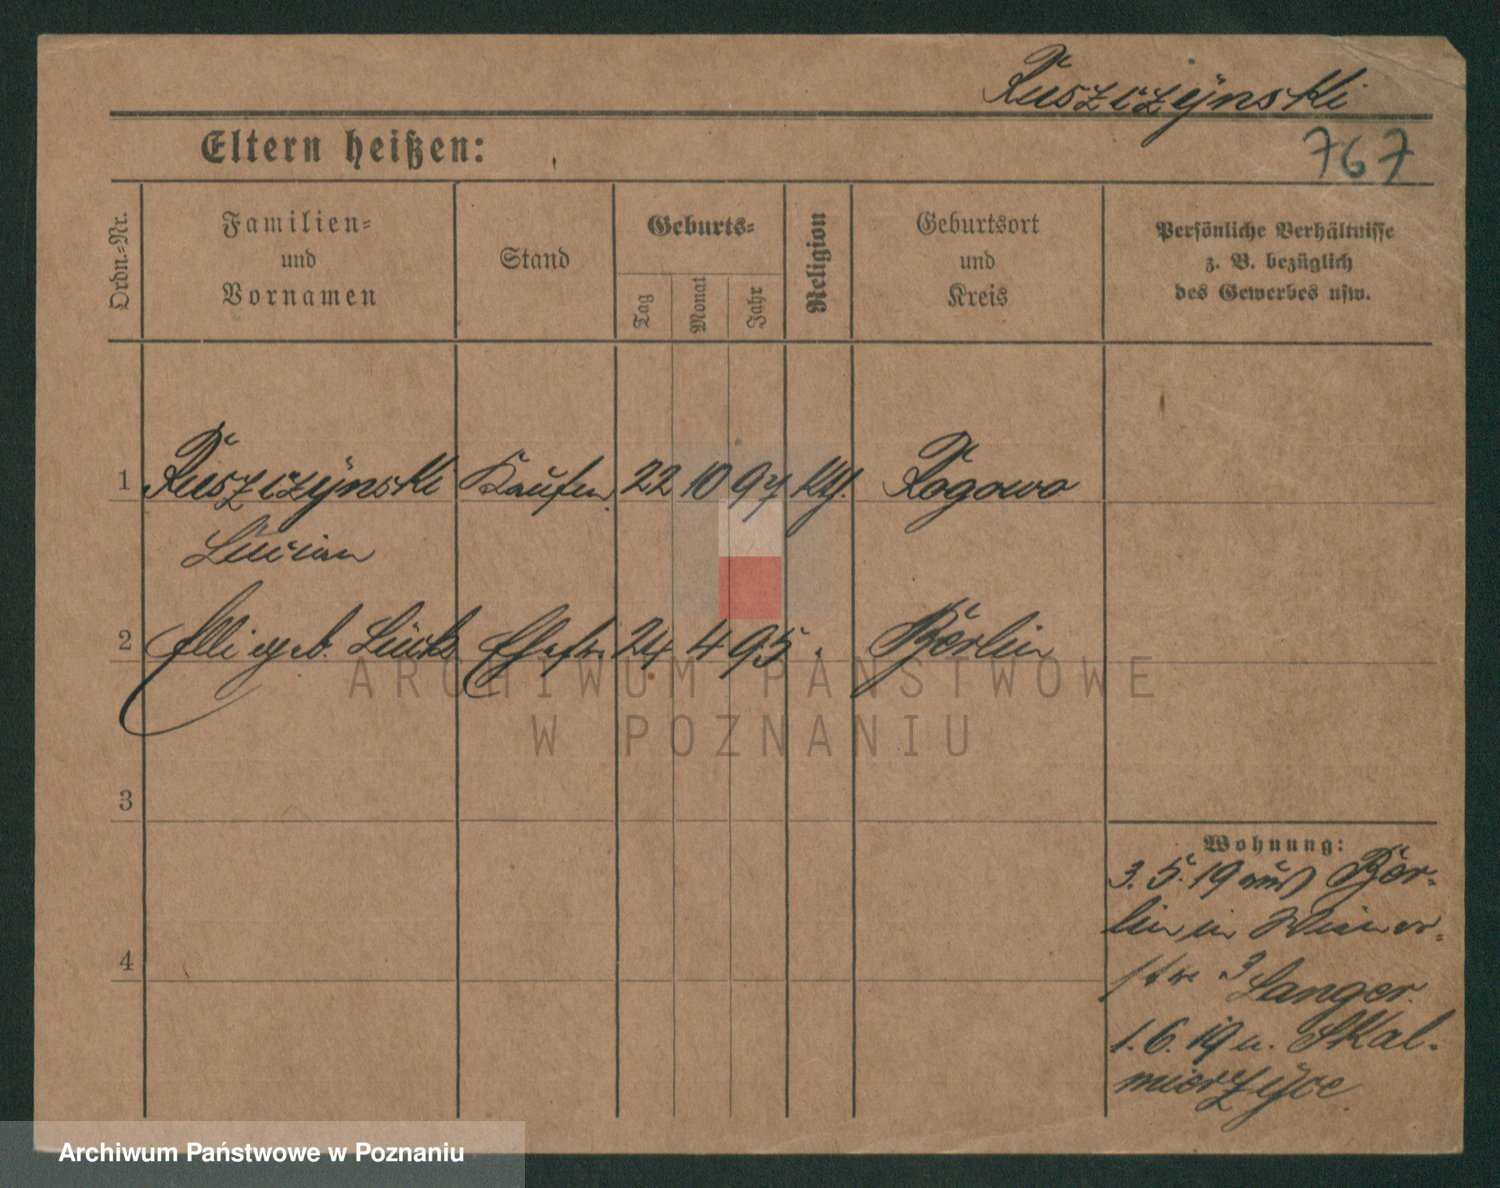 Ruszczÿnski
767
Eltern heißen:
Ordn.=Nr.
Familien=
und
Vornamen
Stand
Geburts=
Tag
Monat
Jahr
Religion
Geburtsort
und
Kreis
Persönliche Verhältnisse
z. B. bezüglich
des Gewerbes usw.
1 Ruszczÿnski Kaufm. 22 10 97 kth. Rogowo
Lucian
2 Elli geb. Lück Ehefr. 24 4 95 Berlin
3
4
Wohnung:
3. 5. 19 aus Ber=
lin in Wiener=
str. 3 Langer.
1. 6. 19 n. Skal=
mierzÿce.
ARCHIWUM PAŃSTWOWE
W POZNANIU
Archiwum Państwowe w Poznaniu